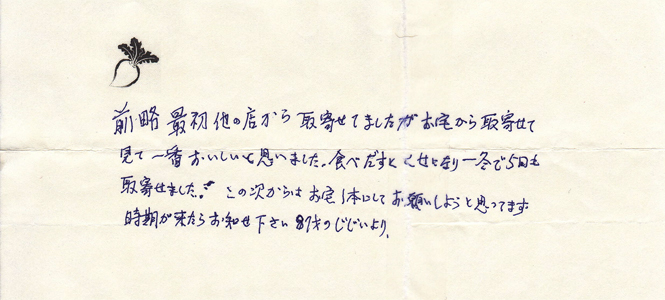 前略 最初他の店から 取寄せてましたがお宅から取寄せて
見て一番おいしいと思いました。食べだすとくせになり一冬で5回も
取寄せました。この次からはお宅1本にしてお願いしようと思ってます
時期が来たらお知せ下さい 87才のじじいより。